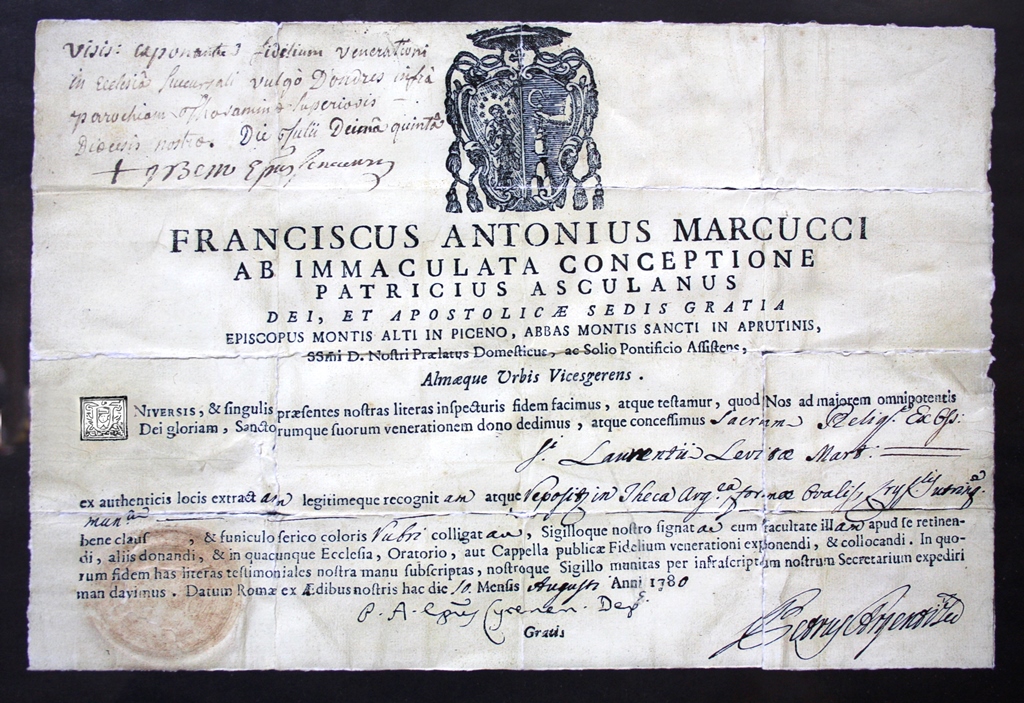 Visis: exponantur Fidelium venerationi
in Ecclesiâ Succursali vulgò Dondres infrà
parochiam Thoramina Superioris
Diœcesis nostræ. Die Julii Decimâ quintâ
+ Epus Senecensis
FRANCISCUS ANTONIUS MARCUCCI
AB IMMACULATA CONCEPTIONE
PATRICIUS ASCULANUS
DEI, ET APOSTOLICÆ SEDIS GRATIA
EPISCOPUS MONTIS ALTI IN PICENO, ABBAS MONTIS SANCTI IN APRUTINIS,
SSmi D. Nostri Prælatus Domesticus, ac Solio Pontificio Assistens,
Almæque Urbis Vicesgerens.
UNIVERSIS, & singulis præsentes nostras literas inspecturis fidem facimus, atque testamur, quod Nos ad majorem omnipotentis
Dei gloriam, Sanctorumque suorum venerationem dono dedimus, atque concessimus Sacram Reliq. Ex Oss:
S. Laurentii Levitæ Mart:
ex authenticis locis extractam legitimeque recognitam atque Reposit in Theca Arg.ea formæ Ovalis Crystlis utrinq.
munita
bene claus , & funiculo serico coloris Rubri colligatam, Sigilloque nostro signatam cum facultate illam apud se retinen-
di, aliis donandi, & in quacunque Ecclesia, Oratorio, aut Cappella publicæ Fidelium venerationi exponendi, & collocandi. In quo-
rum fidem has literas testimoniales nostra manu subscriptas, nostroque Sigillo munitas per infrascriptum nostrum Secretarium expediri
mandavimus. Datum Romæ ex Ædibus nostris hac die 10. Mensis Augusti Anni 1780
P. A. Epus Cyrenen. Dep.
Gratis